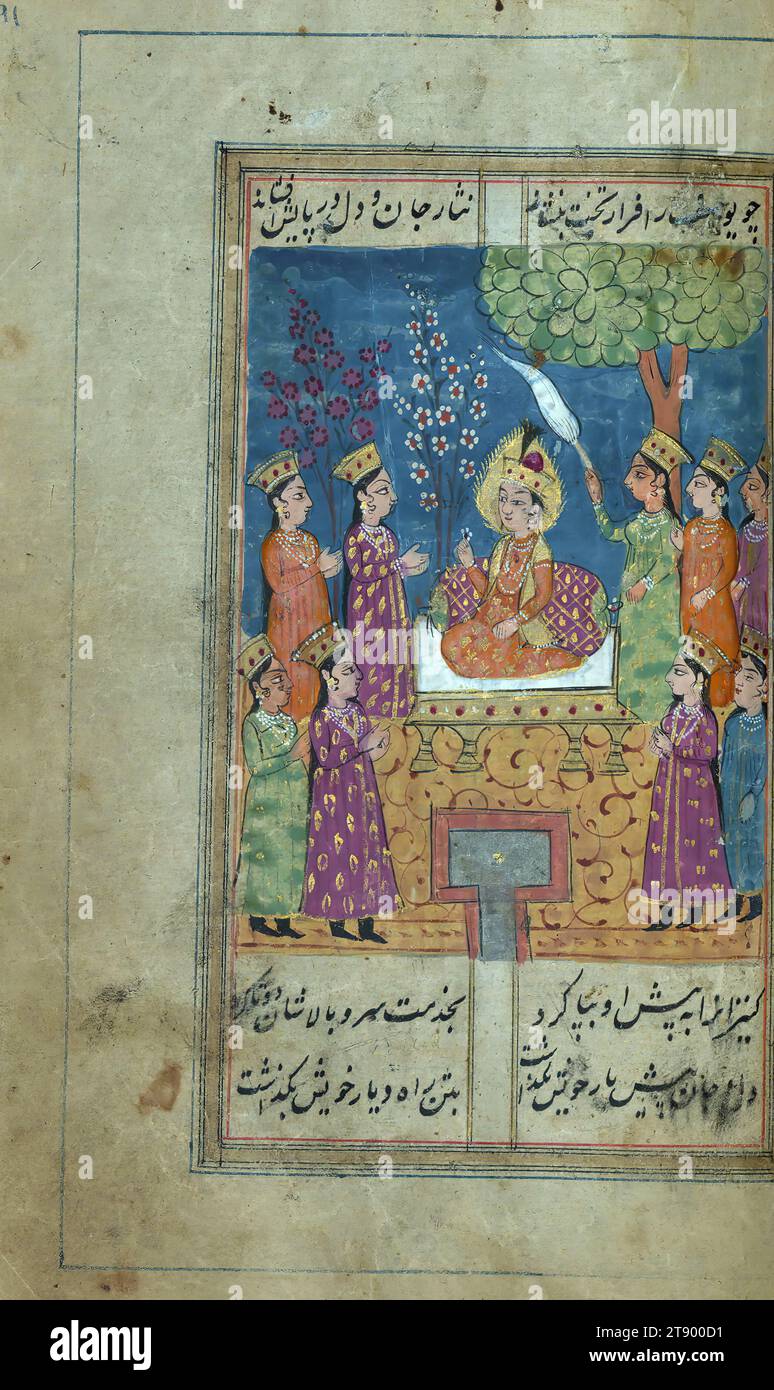 نثار جان و دل در پایش افشاند
کنیزانرا به پیش او بپا کرد
بخدمت سرو بالاشان دوتا کرد
دل و جان پیش یار خویش بگذاشت
بتن راه دیار خویش بگذاشت
alamy
Image ID: 2T900D1
www.alamy.com